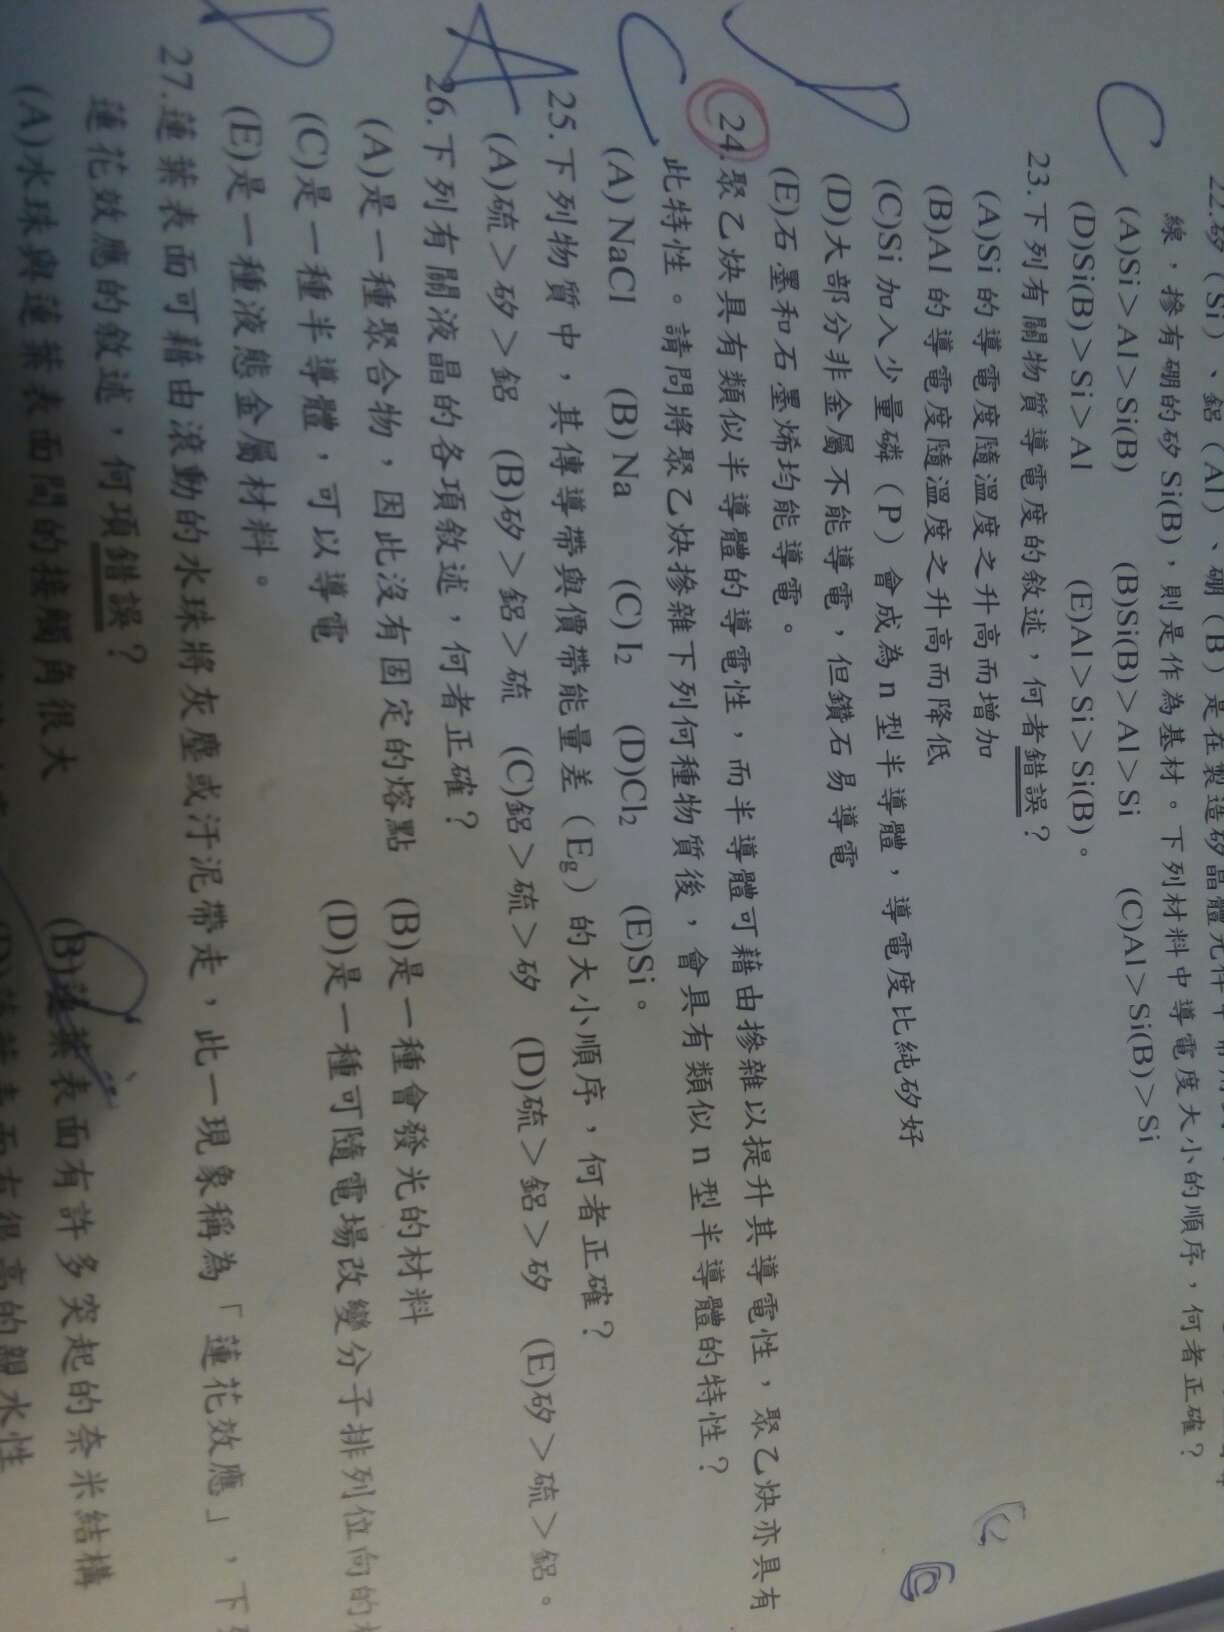 22.矽（Si）、鋁（Al）、硼（B）是在製造矽晶體元件中
線，摻有硼的矽 Si(B)，則是作為基材。下列材料中導電度大小的順序，何者正確？
(A)Si＞Al＞Si(B) (B)Si(B)＞Al＞Si (C)Al＞Si(B)＞Si
(D)Si(B)＞Si＞Al (E)Al＞Si＞Si(B)。
C
23.下列有關物質導電度的敘述，何者錯誤？
(A)Si 的導電度隨溫度之升高而增加
(B)Al 的導電度隨溫度之升高而降低
(C)Si 加入少量磷（P）會成為 n 型半導體，導電度比純矽好
(D)大部分非金屬不能導電，但鑽石易導電
(E)石墨和石墨烯均能導電。
D
24.聚乙炔具有類似半導體的導電性，而半導體可藉由摻雜以提升其導電性，聚乙炔亦具有
此特性。請問將聚乙炔摻雜下列何種物質後，會具有類似 n 型半導體的特性？
(A) NaCl (B) Na (C) I₂ (D)Cl₂ (E)Si。
C
25.下列物質中，其傳導帶與價帶能量差（Eg）的大小順序，何者正確？
(A)硫＞矽＞鋁 (B)矽＞鋁＞硫 (C)鋁＞硫＞矽 (D)硫＞鋁＞矽 (E)矽＞硫＞鋁。
A
26.下列有關液晶的各項敘述，何者正確？
(A)是一種聚合物，因此沒有固定的熔點 (B)是一種會發光的材料
(C)是一種半導體，可以導電 (D)是一種可隨電場改變分子排列位向的
(E)是一種液態金屬材料。
D
27.蓮葉表面可藉由滾動的水珠將灰塵或汙泥帶走，此一現象稱為「蓮花效應」，下
蓮花效應的敘述，何項錯誤？
(A)水珠與蓮葉表面間的接觸角很大 (B)蓮葉表面有許多突起的奈米結構
(D)蓮葉表面有很高的親水性